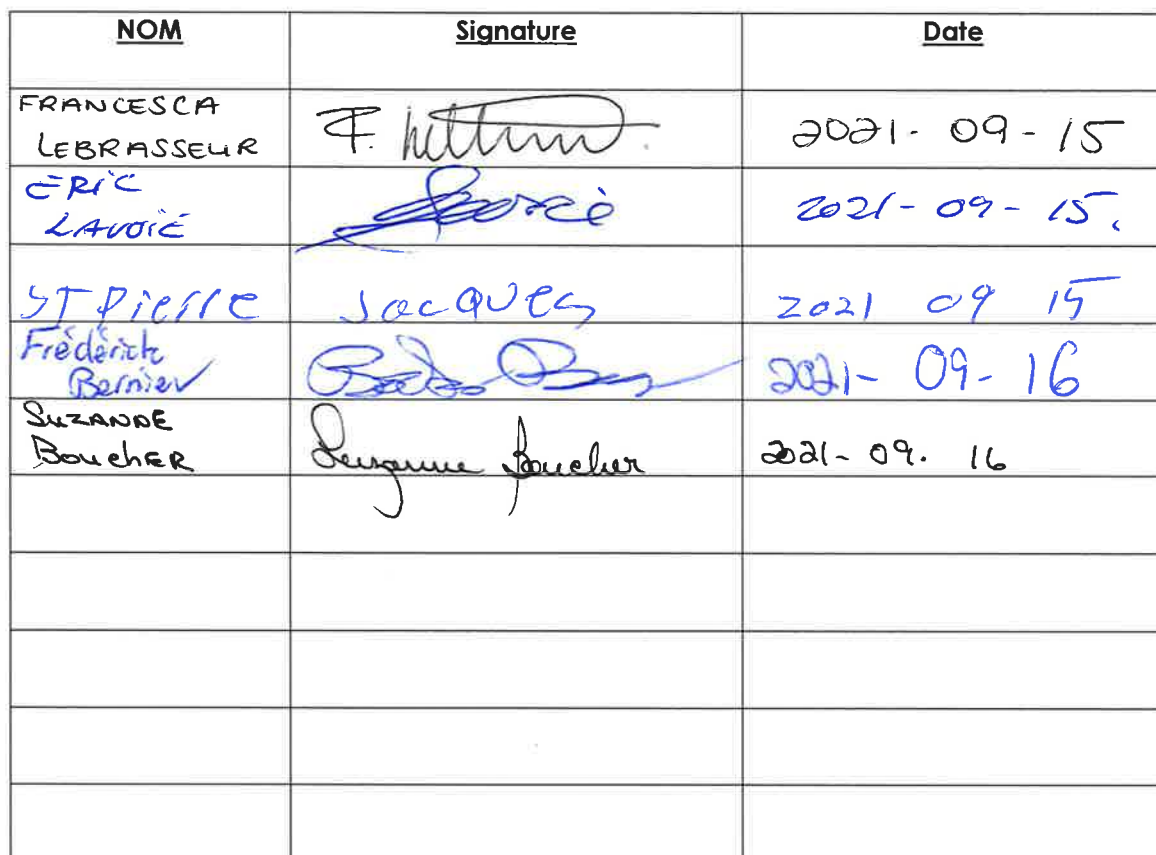 NOM Signature Date
FRANCESCA
LEBRASSEUR F. 2021-09-15
ERIC
LAVOIE 2021-09-15.
ST Pierre Jacques 2021 09 15
Frédérick
Bernier 2021-09-16
SUZANNE
BOUCHER Suzanne Boucher 2021-09. 16